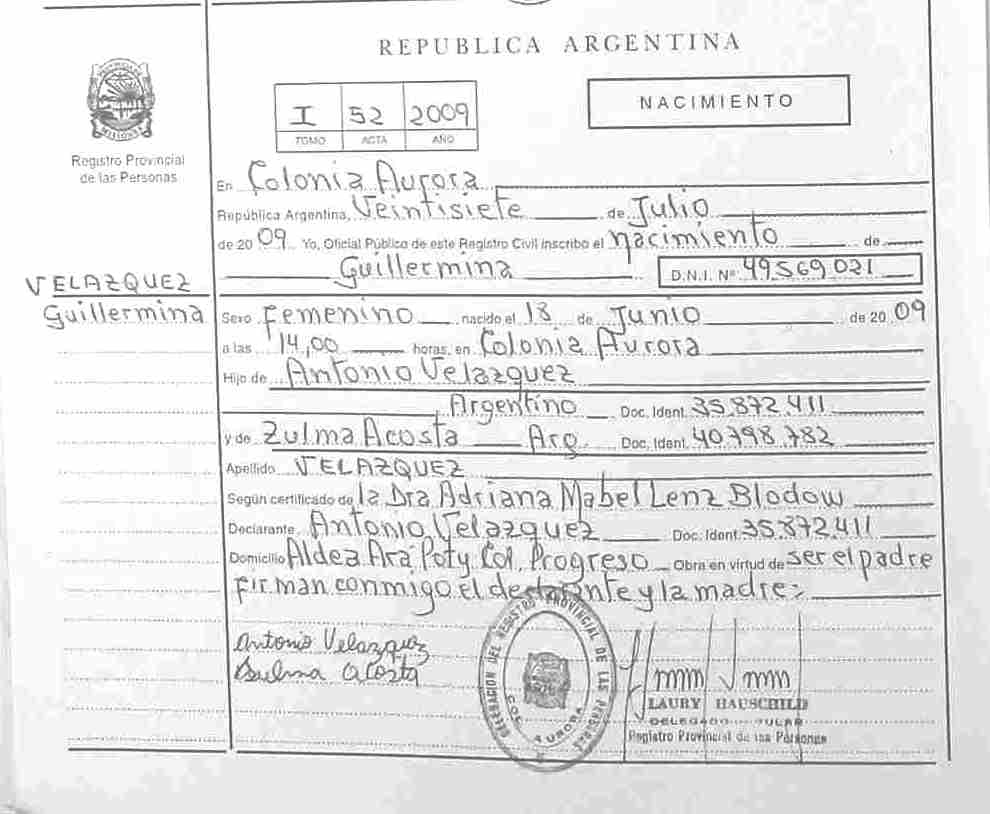 REPUBLICA ARGENTINA
PROVINCIA DE MISIONES
Registro Provincial
de las Personas
I 52 2009
TOMO ACTA AÑO
NACIMIENTO
En Colonia Aurora
República Argentina, Veintisiete de Julio
de 20 09 Yo, Oficial Público de este Registro Civil inscribo el nacimiento de
Guillermina D.N.I. Nº 49569021
VELAZQUEZ
Guillermina
Sexo Femenino nacido el 18 de Junio de 20 09
a las 14,00 horas, en Colonia Aurora
Hijo de Antonio Velazquez
Argentino Doc. Ident. 35.872.411
y de Zulma Acosta Arg. Doc. Ident. 40798782
Apellido VELAZQUEZ
Según certificado de la Dra Adriana Mabel Lenz Blodow
Declarante Antonio Velazquez Doc. Ident. 35.872.411
Domicilio Aldea Ara Poty Col. Progreso Obra en virtud de ser el padre
firman conmigo el declarante y la madre:
Antonio Velazquez
Sulma acosta
DELEGACION DEL REGISTRO PROVINCIAL DE LAS PERSONAS
COL. AURORA
LAURY HAUSCHILD
DELEGADO TITULAR
Registro Provincial de las Personas